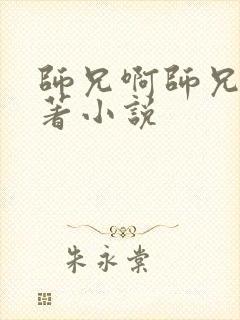 師兄啊師兄
著小説
朱永棠